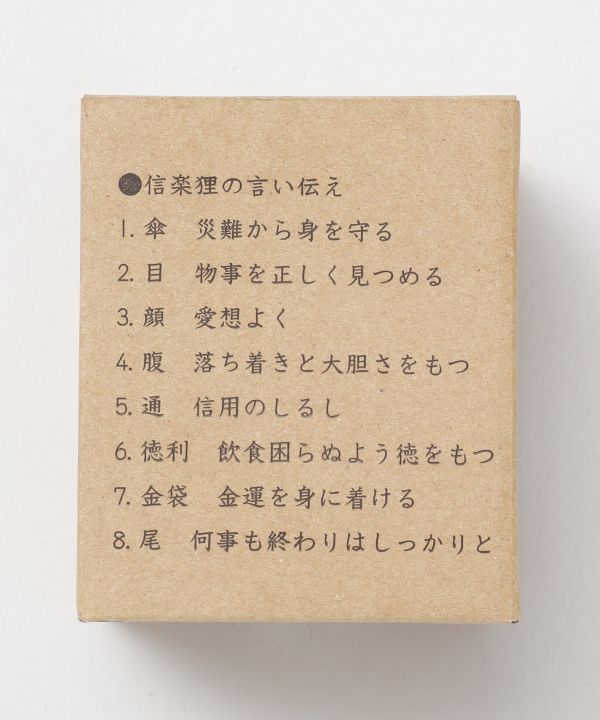 ●信楽狸の言い伝え
1. 傘　災難から身を守る
2. 目　物事を正しく見つめる
3. 顔　愛想よく
4. 腹　落ち着きと大胆さをもつ
5. 通　信用のしるし
6. 徳利　飲食困らぬよう徳をもつ
7. 金袋　金運を身に着ける
8. 尾　何事も終わりはしっかりと